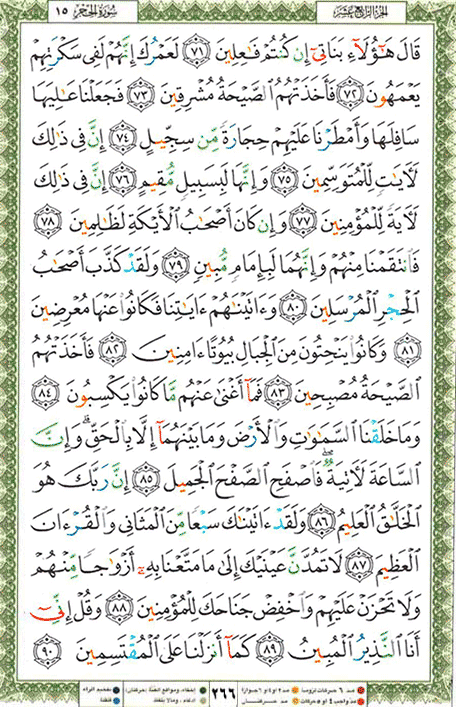 سُورَةُ الحِجْر ١٥
الجُزءُ الرَّابِعُ عَشَر
قَالَ هَٰٓؤُلَآءِ بَنَاتِيٓ إِن كُنتُمْ فَٰعِلِينَ ٧١ لَعَمْرُكَ إِنَّهُمْ لَفِي سَكْرَتِهِمْ
يَعْمَهُونَ ٧٢ فَأَخَذَتْهُمُ ٱلصَّيْحَةُ مُشْرِقِينَ ٧٣ فَجَعَلْنَا عَٰلِيَهَا
سَافِلَهَا وَأَمْطَرْنَا عَلَيْهِمْ حِجَارَةً مِّن سِجِّيلٍ ٧٤ إِنَّ فِي ذَٰلِكَ
لَأٓيَٰتٍ لِّلْمُتَوَسِّمِينَ ٧٥ وَإِنَّهَا لَبِسَبِيلٍ مُّقِيمٍ ٧٦ إِنَّ فِي ذَٰلِكَ
لَأٓيَةً لِّلْمُؤْمِنِينَ ٧٧ وَإِن كَانَ أَصْحَٰبُ ٱلْأَيْكَةِ لَظَٰلِمِينَ ٧٨
فَٱنتَقَمْنَا مِنْهُمْ وَإِنَّهُمَا لَبِإِمَامٍ مُّبِينٍ ٧٩ وَلَقَدْ كَذَّبَ أَصْحَٰبُ
ٱلْحِجْرِ ٱلْمُرْسَلِينَ ٨٠ وَءَاتَيْنَٰهُمْ ءَايَٰتِنَا فَكَانُوا۟ عَنْهَا مُعْرِضِينَ
٨١ وَكَانُوا۟ يَنْحِتُونَ مِنَ ٱلْجِبَالِ بُيُوتًا ءَامِنِينَ ٨٢ فَأَخَذَتْهُمُ
ٱلصَّيْحَةُ مُصْبِحِينَ ٨٣ فَمَآ أَغْنَىٰ عَنْهُم مَّا كَانُوا۟ يَكْسِبُونَ ٨٤
وَمَا خَلَقْنَا ٱلسَّمَٰوَٰتِ وَٱلْأَرْضَ وَمَا بَيْنَهُمَآ إِلَّا بِٱلْحَقِّ ۗ وَإِنَّ
ٱلسَّاعَةَ لَأٓتِيَةٌ ۖ فَٱصْفَحِ ٱلصَّفْحَ ٱلْجَمِيلَ ٨٥ إِنَّ رَبَّكَ هُوَ
ٱلْخَلَّٰقُ ٱلْعَلِيمُ ٨٦ وَلَقَدْ ءَاتَيْنَٰكَ سَبْعًا مِّنَ ٱلْمَثَانِي وَٱلْقُرْءَانَ
ٱلْعَظِيمَ ٨٧ لَا تَمُدَّنَّ عَيْنَيْكَ إِلَىٰ مَا مَتَّعْنَا بِهِۦٓ أَزْوَٰجًا مِّنْهُمْ
وَلَا تَحْزَنْ عَلَيْهِمْ وَٱخْفِضْ جَنَاحَكَ لِلْمُؤْمِنِينَ ٨٨ وَقُلْ إِنِّيٓ
أَنَا ٱلنَّذِيرُ ٱلْمُبِينُ ٨٩ كَمَآ أَنزَلْنَا عَلَى ٱلْمُقْتَسِمِينَ ٩٠
٢٦٦